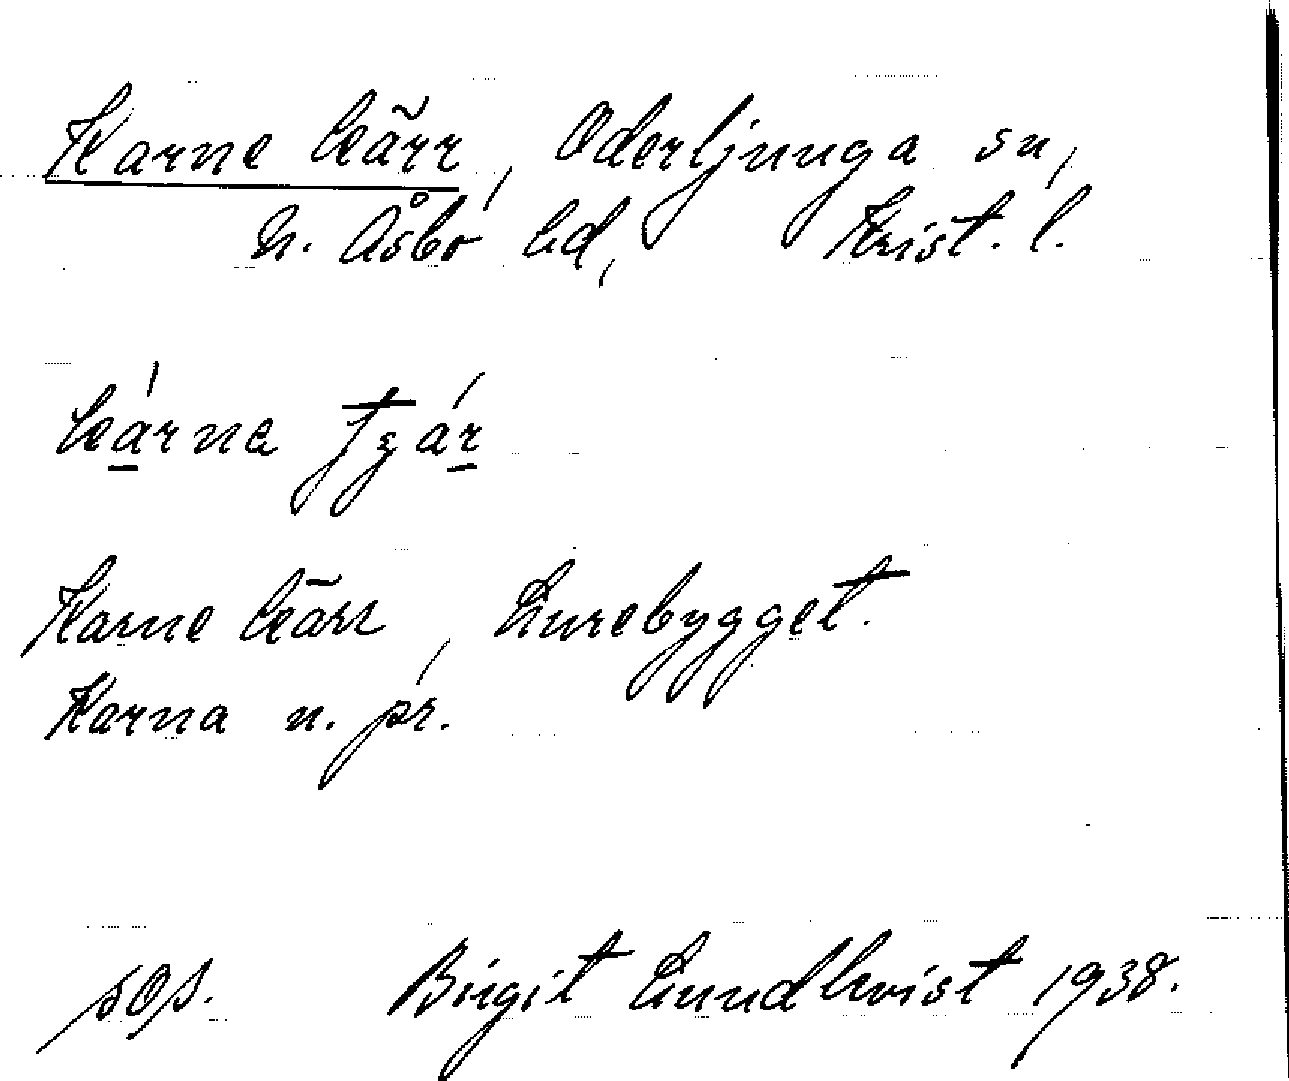 Karne kärr, Oderljunga sn,
N. Åsbo hd, Krist. l.
kárna
Karne kärr, Lurebygget.
Karna n. pr.
Birgit Lundkvist 1938.